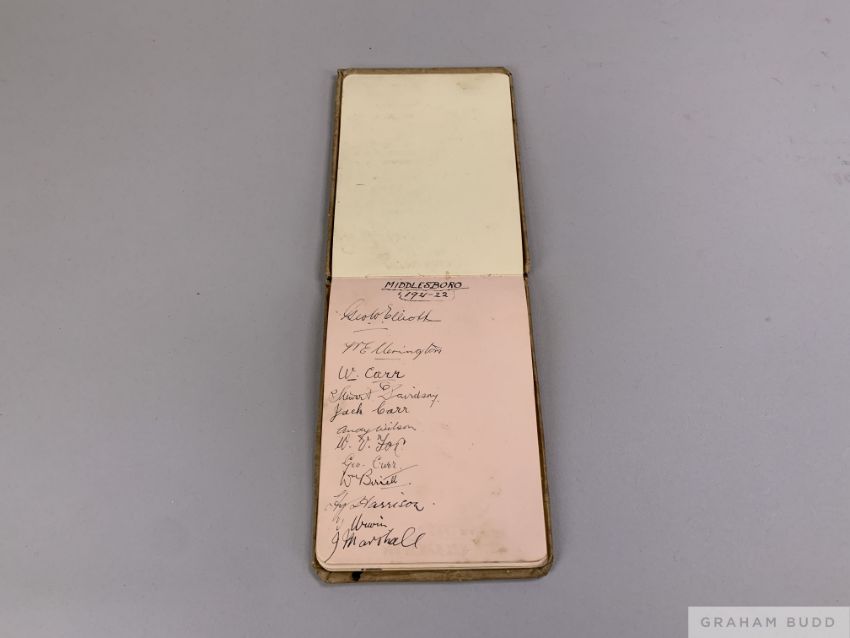 MIDDLESBORO
1921-22
Geo. W. Elliott
W. Carr
Stewart Davidson
Jack Carr
Andy Wilson
W. V. Fox
Geo. Carr
Wm Birrell.
Hy Harrison.
Urwin
J Marshall
GRAHAM BUDD